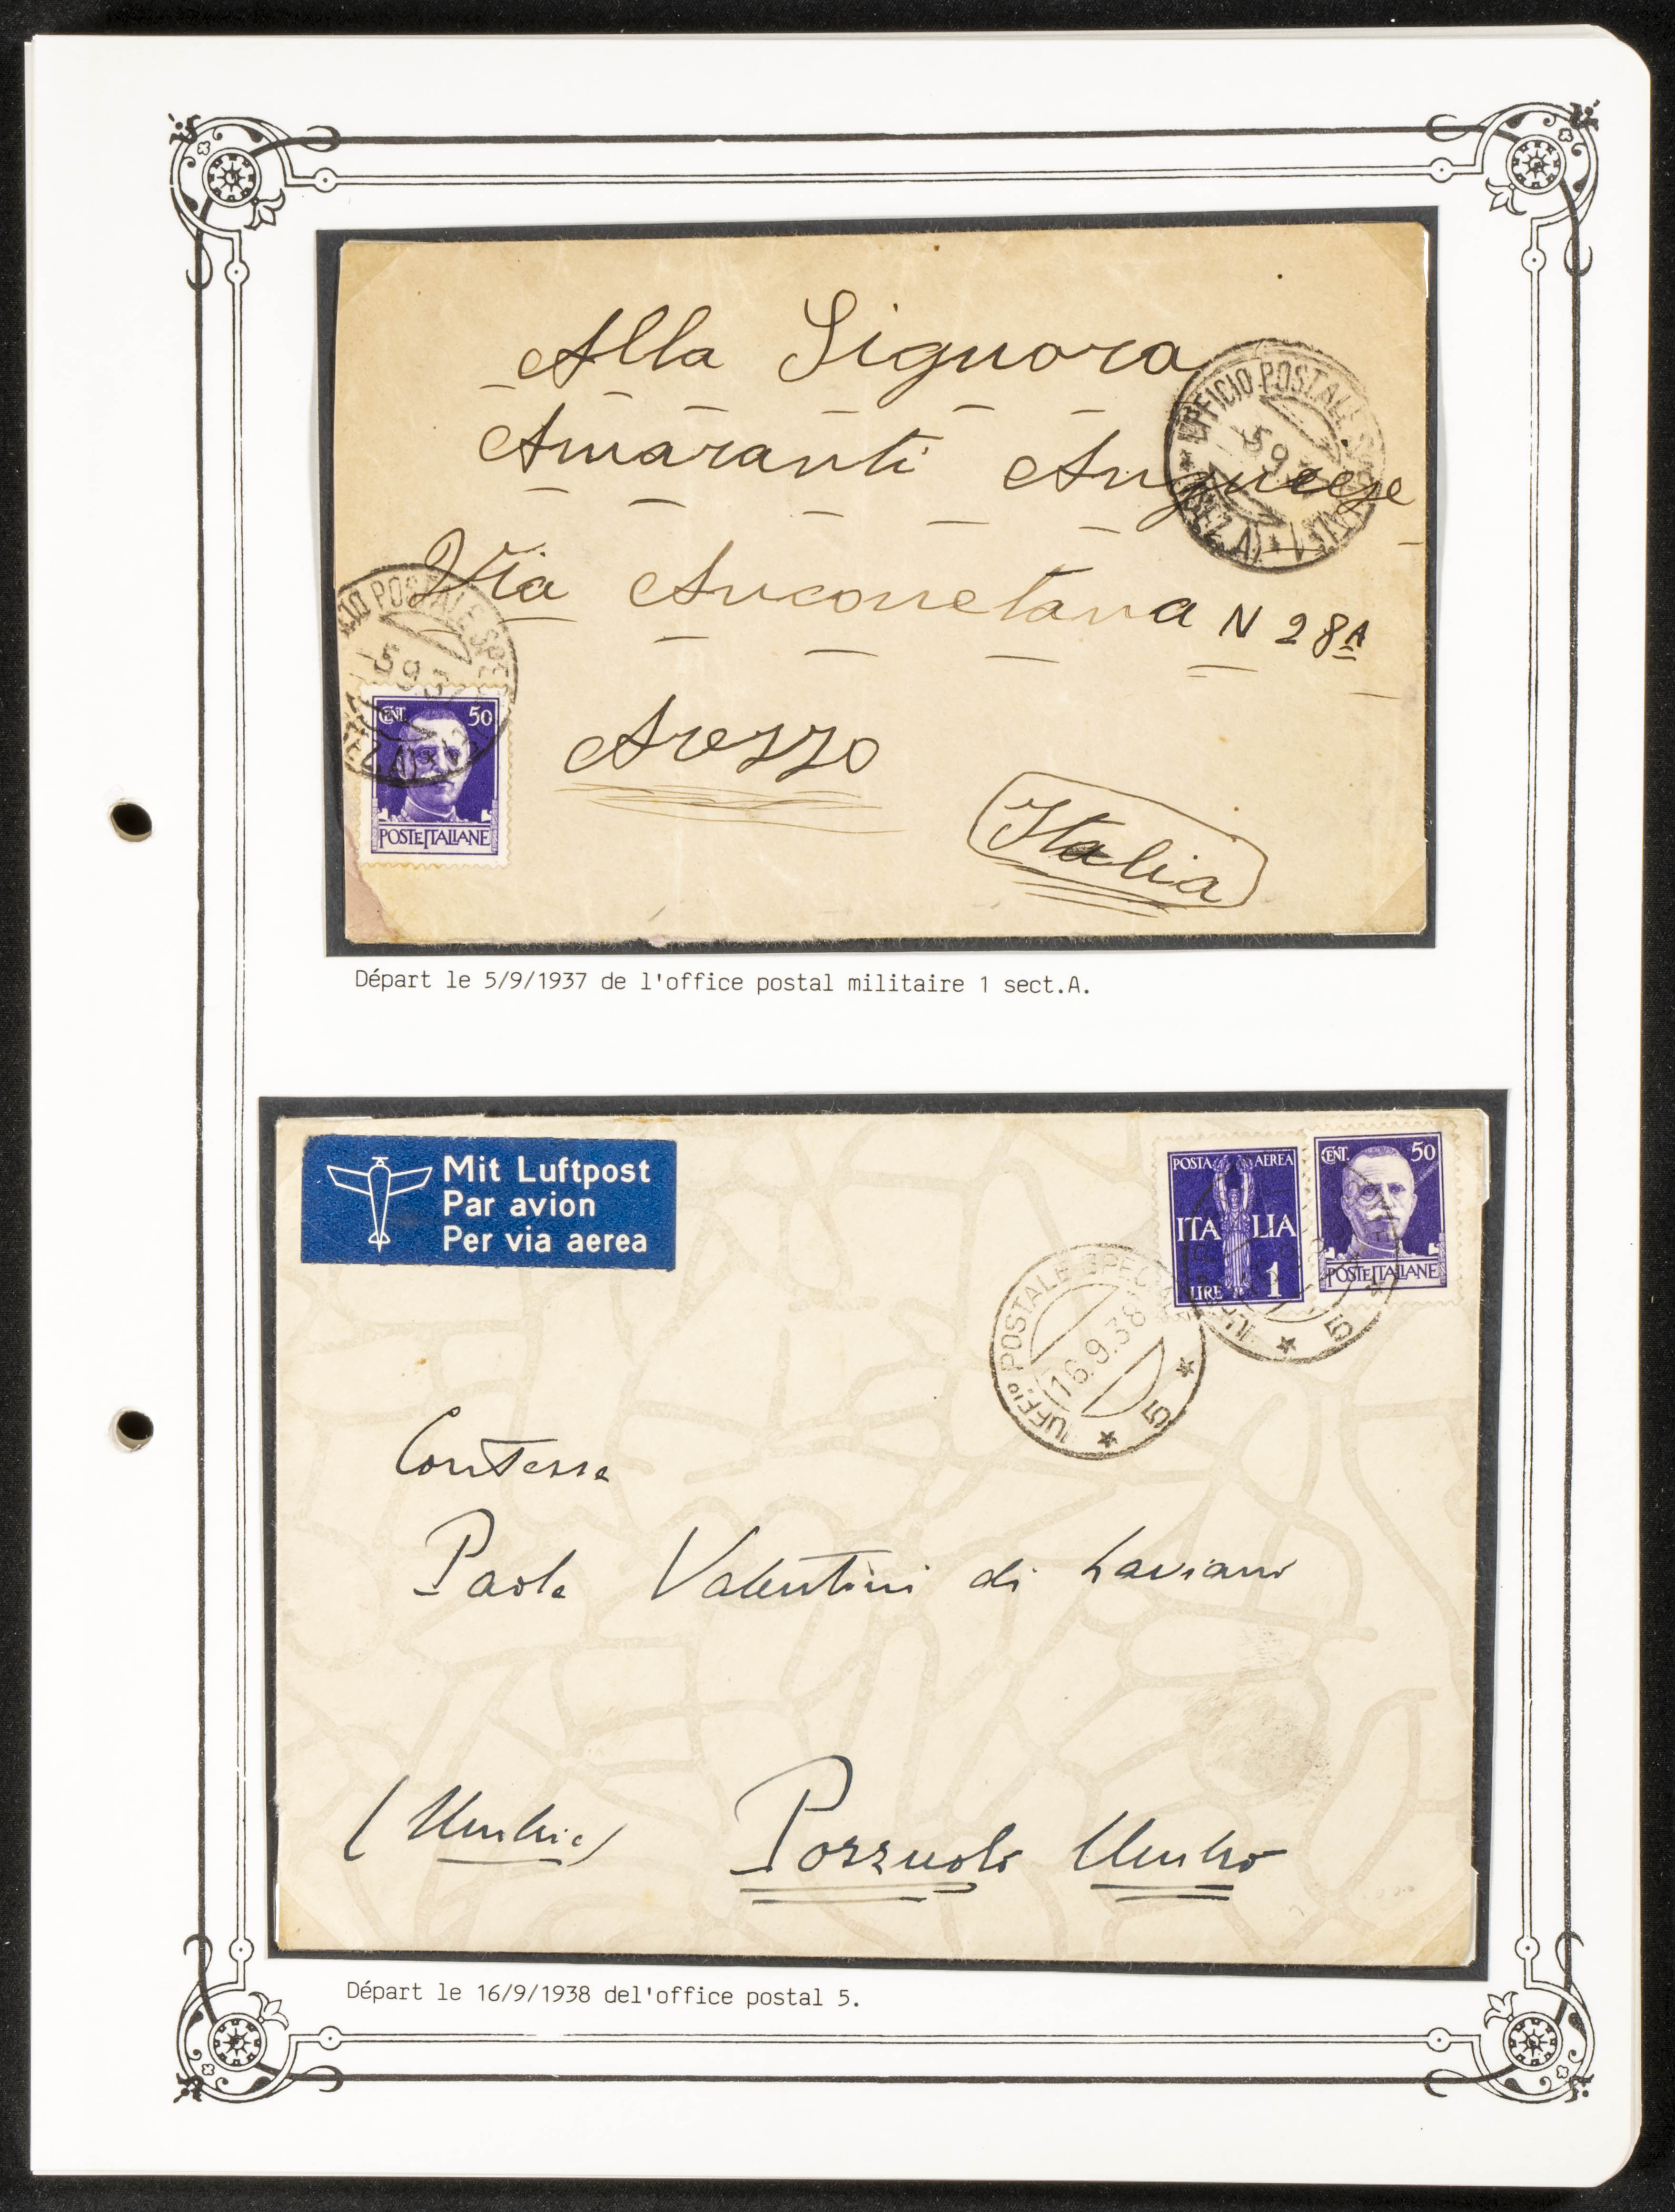 Alla Signora
Amaranti
Via Anconetana N 28A
Arezzo
Italia
UFFICIO POSTALE
5 9
CIO POSTALE SPE
5 9 3
CENT. 50
POSTE ITALIANE
Départ le 5/9/1937 de l'office postal militaire 1 sect.A.
Mit Luftpost
Par avion
Per via aerea
POSTA AEREA
ITALIA
LIRE 1
CENT. 50
POSTE ITALIANE
UFFICIO POSTALE SPECIALE
16.9.38
5
5
Contessa
Paola Valentini di Laviano
(Umbria) Pozzuolo Umbro
Départ le 16/9/1938 del'office postal 5.